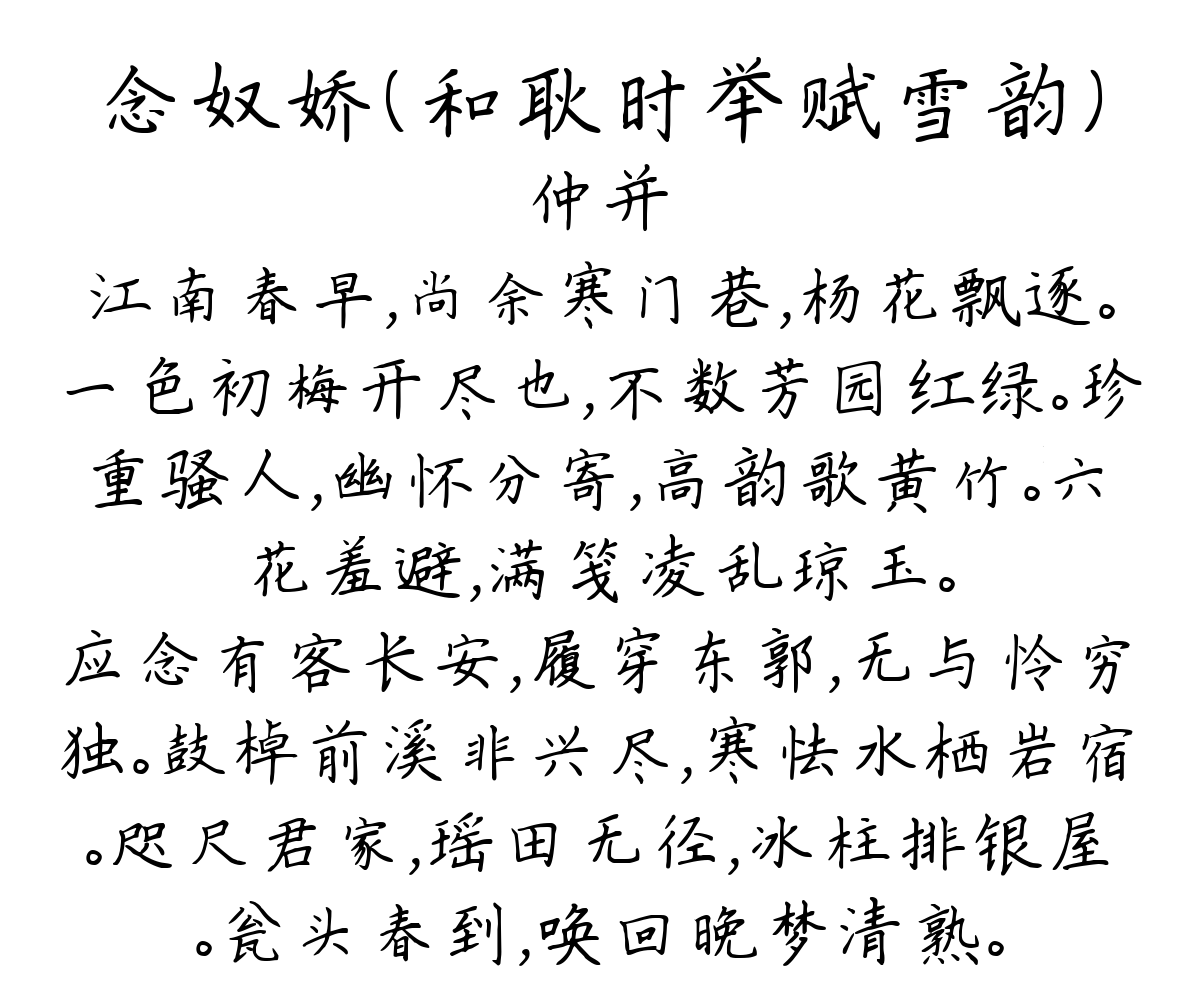 念奴娇(和耿时举赋雪韵)
仲并
江南春早,尚余寒门巷,杨花飘逐。
一色初梅开尽也,不数芳园红绿。珍
重骚人,幽怀分寄,高韵歌黄竹。六
花羞避,满笺凌乱琼玉。
应念有客长安,履穿东郭,无与怜穷
独。鼓棹前溪非兴尽,寒怯水栖岩宿
。咫尺君家,瑶田无径,冰柱排银屋
。瓮头春到,唤回晚梦清熟。